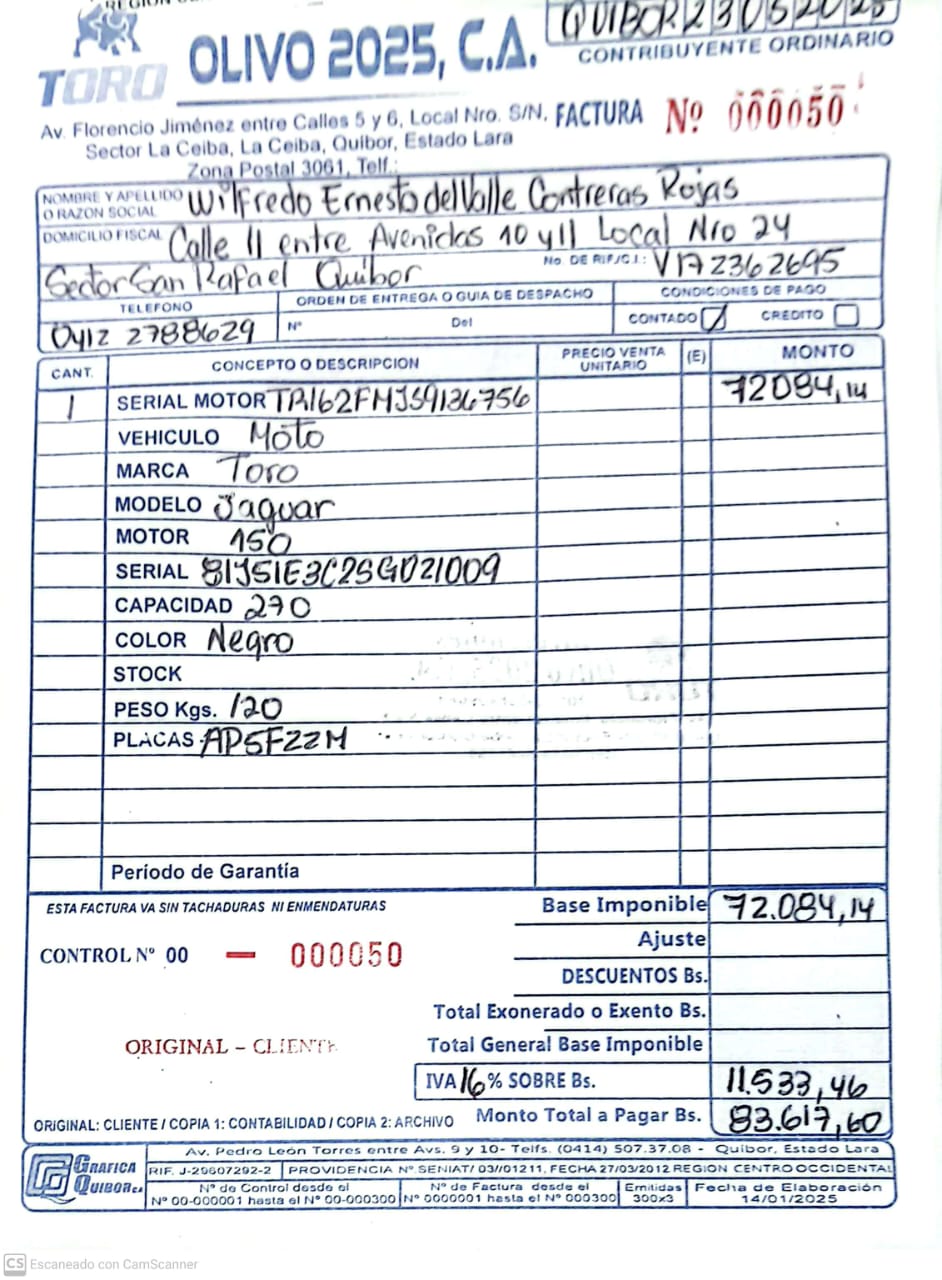 TORO
OLIVO 2025, C.A.
QUIBOR 23 05 2025
CONTRIBUYENTE ORDINARIO
Av. Florencio Jiménez entre Calles 5 y 6, Local Nro. S/N,
Sector La Ceiba, La Ceiba, Quibor, Estado Lara
Zona Postal 3061, Telf.:
FACTURA Nº 000050
NOMBRE Y APELLIDO O RAZON SOCIAL Wilfredo Ernesto del Valle Contreras Rojas
DOMICILIO FISCAL Calle 11 entre Avenidas 10 y 11 Local Nro 24
Sector San Rafael Quibor No. DE RIF/C.I.: V172362695
TELEFONO 0412 2788629
ORDEN DE ENTREGA O GUIA DE DESPACHO
N° Del
CONDICIONES DE PAGO
CONTADO CREDITO
CANT. CONCEPTO O DESCRIPCION PRECIO VENTA UNITARIO (E) MONTO
1 SERIAL MOTOR TR162FMJS9136756 72084,14
VEHICULO Moto
MARCA Toro
MODELO Jaguar
MOTOR 150
SERIAL 81J51E3C2SGD21009
CAPACIDAD 270
COLOR Negro
STOCK
PESO Kgs. 120
PLACAS AP5F22M
Periodo de Garantía
ESTA FACTURA VA SIN TACHADURAS NI ENMENDATURAS
Base Imponible 72.084,14
Ajuste
CONTROL N° 00 – 000050
DESCUENTOS Bs.
Total Exonerado o Exento Bs.
ORIGINAL – CLIENTE
Total General Base Imponible
IVA 16 % SOBRE Bs. 11.533,46
ORIGINAL: CLIENTE / COPIA 1: CONTABILIDAD / COPIA 2: ARCHIVO
Monto Total a Pagar Bs. 83.617,60
GRAFICA QUIBOR C.A.
Av. Pedro León Torres entre Avs. 9 y 10- Telfs. (0414) 507.37.08 - Quibor, Estado Lara
RIF. J-29607292-2 PROVIDENCIA N° SENIAT/ 03/01211, FECHA 27/03/2012 REGION CENTRO OCCIDENTAL
N° de Control desde el N° 00-000001 hasta el N° 00-000300
N° de Factura desde el N° 0000001 hasta el N° 000300
Emitidas 300x3
Fecha de Elaboración 14/01/2025
CS Escaneado con CamScanner